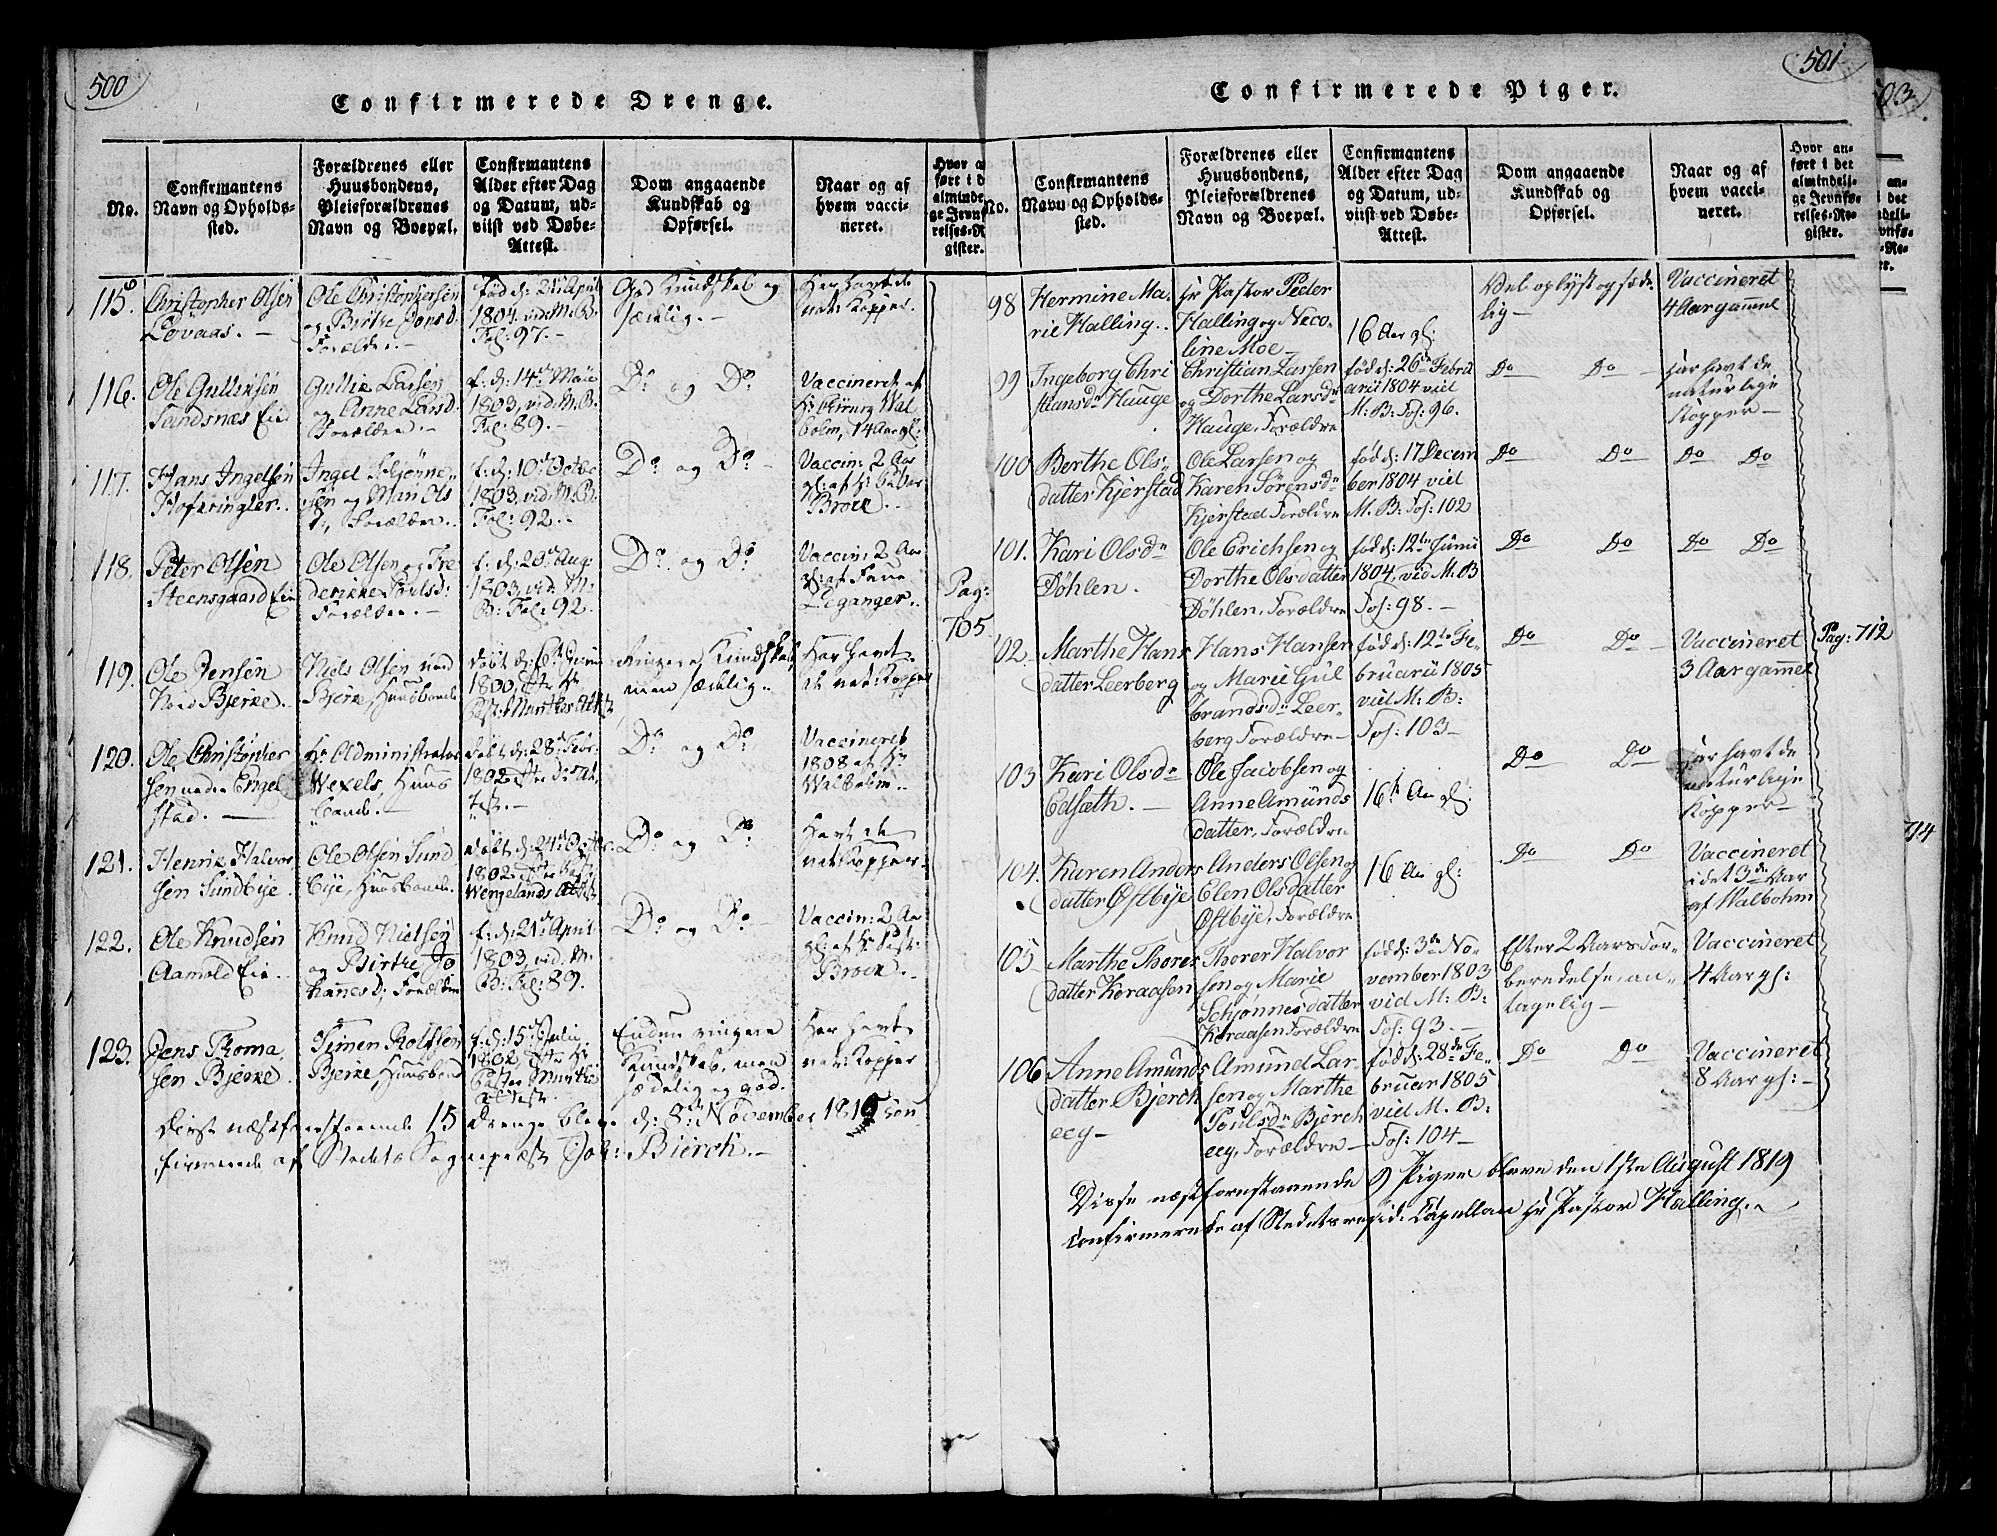 500
Confirmerede Drenge.
No.
Confirmantens
Navn og Opholds-
sted.
Forældrenes eller
Huusbondens,
Pleieforældrenes
Navn og Boepæl.
Confirmantens
Alder efter Dag
og Datum, ud-
viist ved Døbe-
Attest.
Dom angaaende
Kundskab og
Opførsel.
Naar og af
hvem vacci-
neret.
115.
Christopher Olsen
Lovaas. -
Ole Christophersen
og Birthe Jonsd.
Forældre. -
født d: 21de April
1804. vid: M. B.
Fol: 97. -
God Kundskab og
sædelig. -
Har havt de
nat: Kopper.
116.
Ole Gulliksen
Sandsnæs Eie
Gullik Larsen
og Anne Larsd.
Forældre. -
f: d: 14de Maii
1803, vid. M. B.
Fol: 89. -
Do og Do
Vaccineret af
Hr Chirurg Wal
bolm, 14 Aar gl:
117.
Hans Ingelsen
Hofsringler..
Ingel
sen og Mari Ols
D., Forældre..
f: d: 10de Octbr
1803, vid. M. B.
Fol: 92. -
Do og Do -
Vaccin: 2 Aar
gl: af
Brock. -
118.
Peter Olsen
Steensgaard Eie
Ole Olsen og Fre
derikke Poulsd:
Forældre. -
f: d: 20de Aug
1803, vid. M.
B: Fol: 92.
Do og Do
Vaccin: 2 Aar
gl: af
Leganger..
Pag:
705.
119.
Ole Jensen
Nord Bjerke.
Niels Olsen nord
Bjerke, Huusbonde
1800,
Ringere Kundskab,
men sædelig..
Har havt
de nat: Kopper
120.
Ole Christopher
sen nedre Engel
stad. -
Hr. Administrator
Wexels, Huus
bonde. -
døbt d: 28de Febr.
1802
Do og Do
Vaccineret
1808 af Hr
Walbolm..
121.
Henrik Halvor
sen Sundbye.
Ole Olsen Sund
bye, Huusbonde.
døbt d: 24de Octbr.
1802.
Wergelands Attest
Do og Do
Havt de
nat: Kopper.
122.
Ole Knudsen
Aamold Eie..
Knud Nielsen
og Birthe Jo
hannesD; Forældre
f: d: 21de April
1803, vid. M.
B: Fol: 89.
Do og Do -
Vaccin: 2 Aar
gl: af Hr Past:
Brock. -
123.
Jens Thoma
sen Bjerke.
Simen Rolfsen
Bjerke, Huusbond
f: d: 15de Julii,
1802
Attest.
Endnu ringere
Kundskab, men
sædelig og god.
Har havt
nat: Kopper
Disse næstforestaaende 15 Drenge bleve d: 8de November 1819 con
firmerede af Stedets Sognepræst Joh: Bierch. -
501
Confirmerede Piger.
No.
Confirmantens
Navn og Opholds-
sted.
Forældrenes eller
Huusbondens,
Pleieforældrenes
Navn og Boepæl.
Confirmantens
Alder efter Dag
og Datum, ud-
viist ved Døbe-
Attest.
Dom angaaende
Kundskab og
Opførsel.
Naar og af
hvem vacci-
neret.
Hvor an-
ført i det
almindeli-
ge Jevnfø-
relses-Re-
gister.
98
Hermine Ma-
rie Halling..
Hr Pastor Peder
Halling og Neco-
line Moe -
16 Aar gl:
Vel oplyst og sæde-
lig -
Vaccineret
4 Aar gammel
99
Ingeborg Chri
stiansdr Hauge
Christian Larsen
og Dorthe Larsdr
Hauge, Forældre
født d: 26de Febru
arii 1804 viid
M. B: Fol: 96.
Do Do
har havt de
naturlige
Kopper -
100
Berthe Ols-
datter Kjerstad
Ole Larsen og
Karen Sørensdr
Kjerstad Forældre
født d: 17 Decem
ber 1804 viid
M. B: Fol: 102
Do Do
Do Do
101.
Kari Olsdr
Døhlen.
Ole Erichsen og
Dorthe Olsdatter
Døhlen, Forældre
født d: 12te Junii
1804, vid M. B
Fol: 98. -
Do Do
Do Do
102
Marthe Hans
datter Leerberg
Hans Hansen
og Marie Gul
brandsdr Leer-
berg Forældre -
født d: 12te Fe-
bruarii 1805
viid M. B:
Fol: 103 -
Do Do -
Vaccineret
3 Aar gammel
Pag: 712
103
Kari Olsdr
Edsæth. -
Ole Jacobsen og
Anne Amunds
datter, Forældre
16 Aar gl:
Do Do
har havt de
naturlige
Kopper -
104.
Karen Anders
datter Østbye
Anders Olsen og
Elen Olsdatter
Østbye, Forældre
16 Aar gl:
Do Do
Vaccineret
i det 3de Aar
af Walbohm
105
Marthe Thores
datter Koraasen
Thorer Halvor
sen og Marie
Schjønnesdatter
Koraasen Forældre
født d: 3de No-
vember 1803
vid M. B:
Fol: 93. -
Efter 2 Aars For-
beredelse, an-
tagelig -
Vaccineret
4 Aar gl:
106
Anne Amunds
datter Bjerch
eeg -
Amund Lar-
sen og Marthe
Poulsdr Bjerch
eeg, Forældre -
født d: 28de Fe-
bruar 1805
viid M. B:
Fol: 104 -
Do Do
Vaccineret
8 Aar gl: -
Disse næstforestaaende 9 Piger bleve den 1ste August 1819
Confirmerede af Stedets resid: Capellan Hr Pastor Halling..